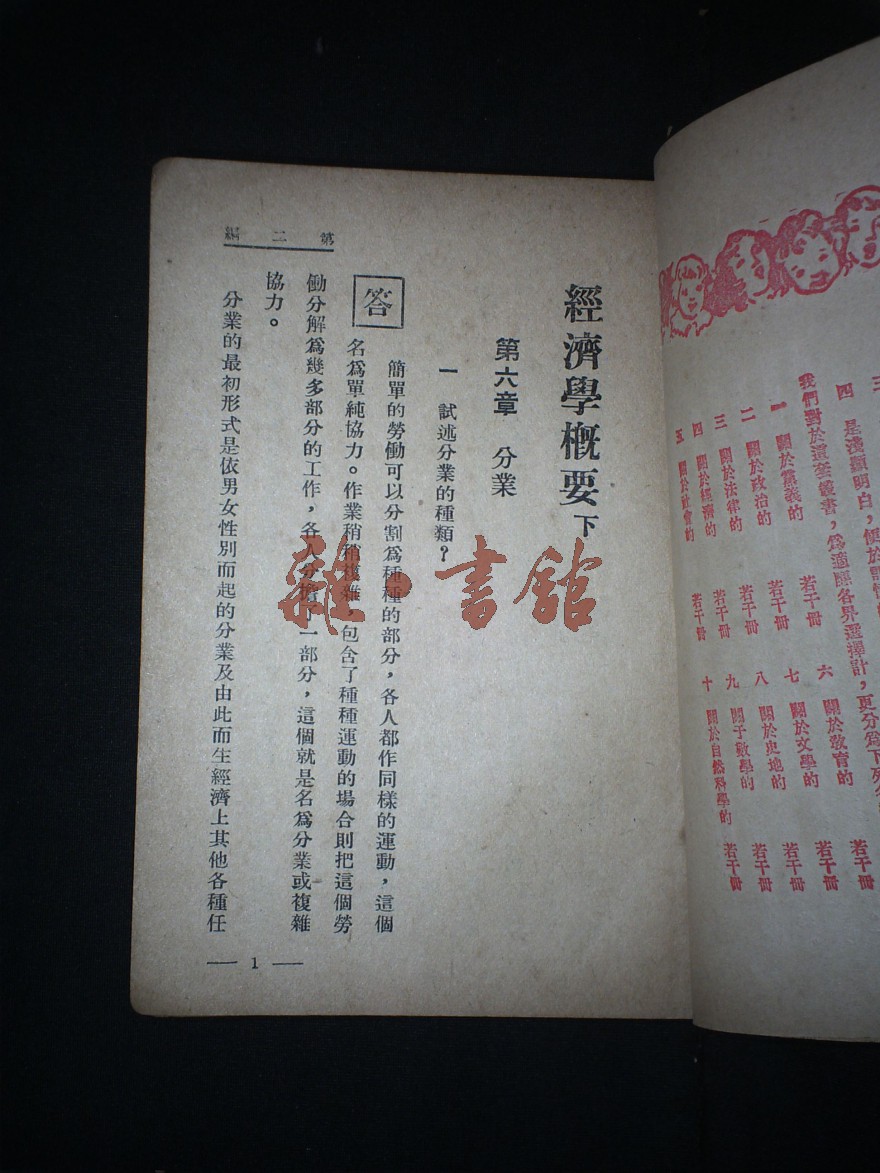 三
四　是淺顯明白，便於記憶
我們對於這套叢書，爲適應各界選擇計，更分爲下列
一　關於黨義的　若干冊　六　關於教育的　若干冊
二　關於政治的　若干冊　七　關於文學的　若干冊
三　關於法律的　若干冊　八　關於史地的　若干冊
四　關於經濟的　若干冊　九　關于數學的　若干冊
五　關於社會的　若干冊　十　關於自然科學的　若干冊
經濟學概要下
第六章　分業
一　試述分業的種類？
答　簡單的勞働可以分割爲種種的部分，各人都作同樣的運動，這個
名爲單純協力。作業稍稍複雜，包含了種種運動的場合則把這個勞
働分解爲幾多部分的工作，各人分擔了一部分，這個就是名爲分業或複雜
協力。
分業的最初形式是依男女性別而起的分業及由此而生經濟上其他各種任
第二編
— 1 —
雜·書館